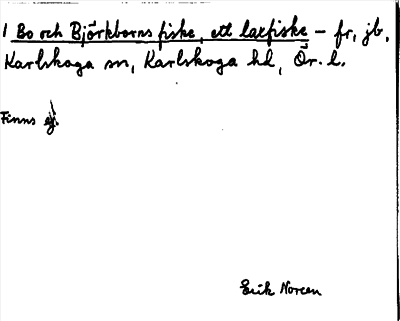 1 Bo och Björkborns fiske, ett laxfiske – fr, jb,
Karlskoga sn, Karlskoga hd, Ör. l.
Finns ej.
Erik Noreen